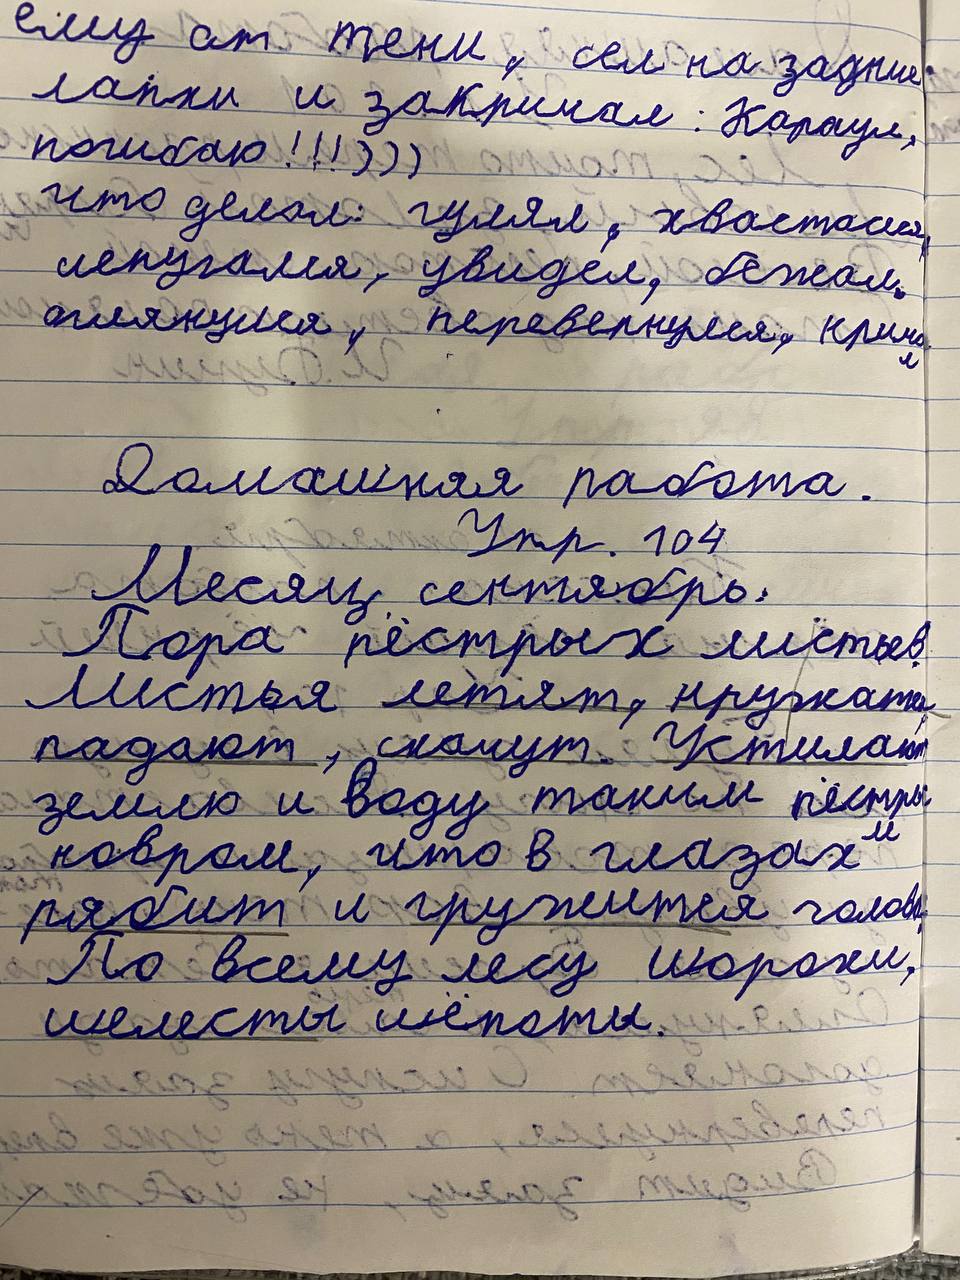 ему от тени, сел на задние
лапки и закричал: Караул,
погибаю!!!)))
Что делал: гулял, хвастался,
испугался, увидел, бежал.
оглянулся, перевернулся, крича
л
Домашняя работа.
Упр. 104
Месяц сентябрь.
Пора пёстрых листьев.
Листья летят, кружатся,
падают, скачут. Устилают
землю и воду таким пёстры
м
ковром, что в глазах
рябит и гружится голова.
По всему лесу шорохи,
шелесты шёпоты.